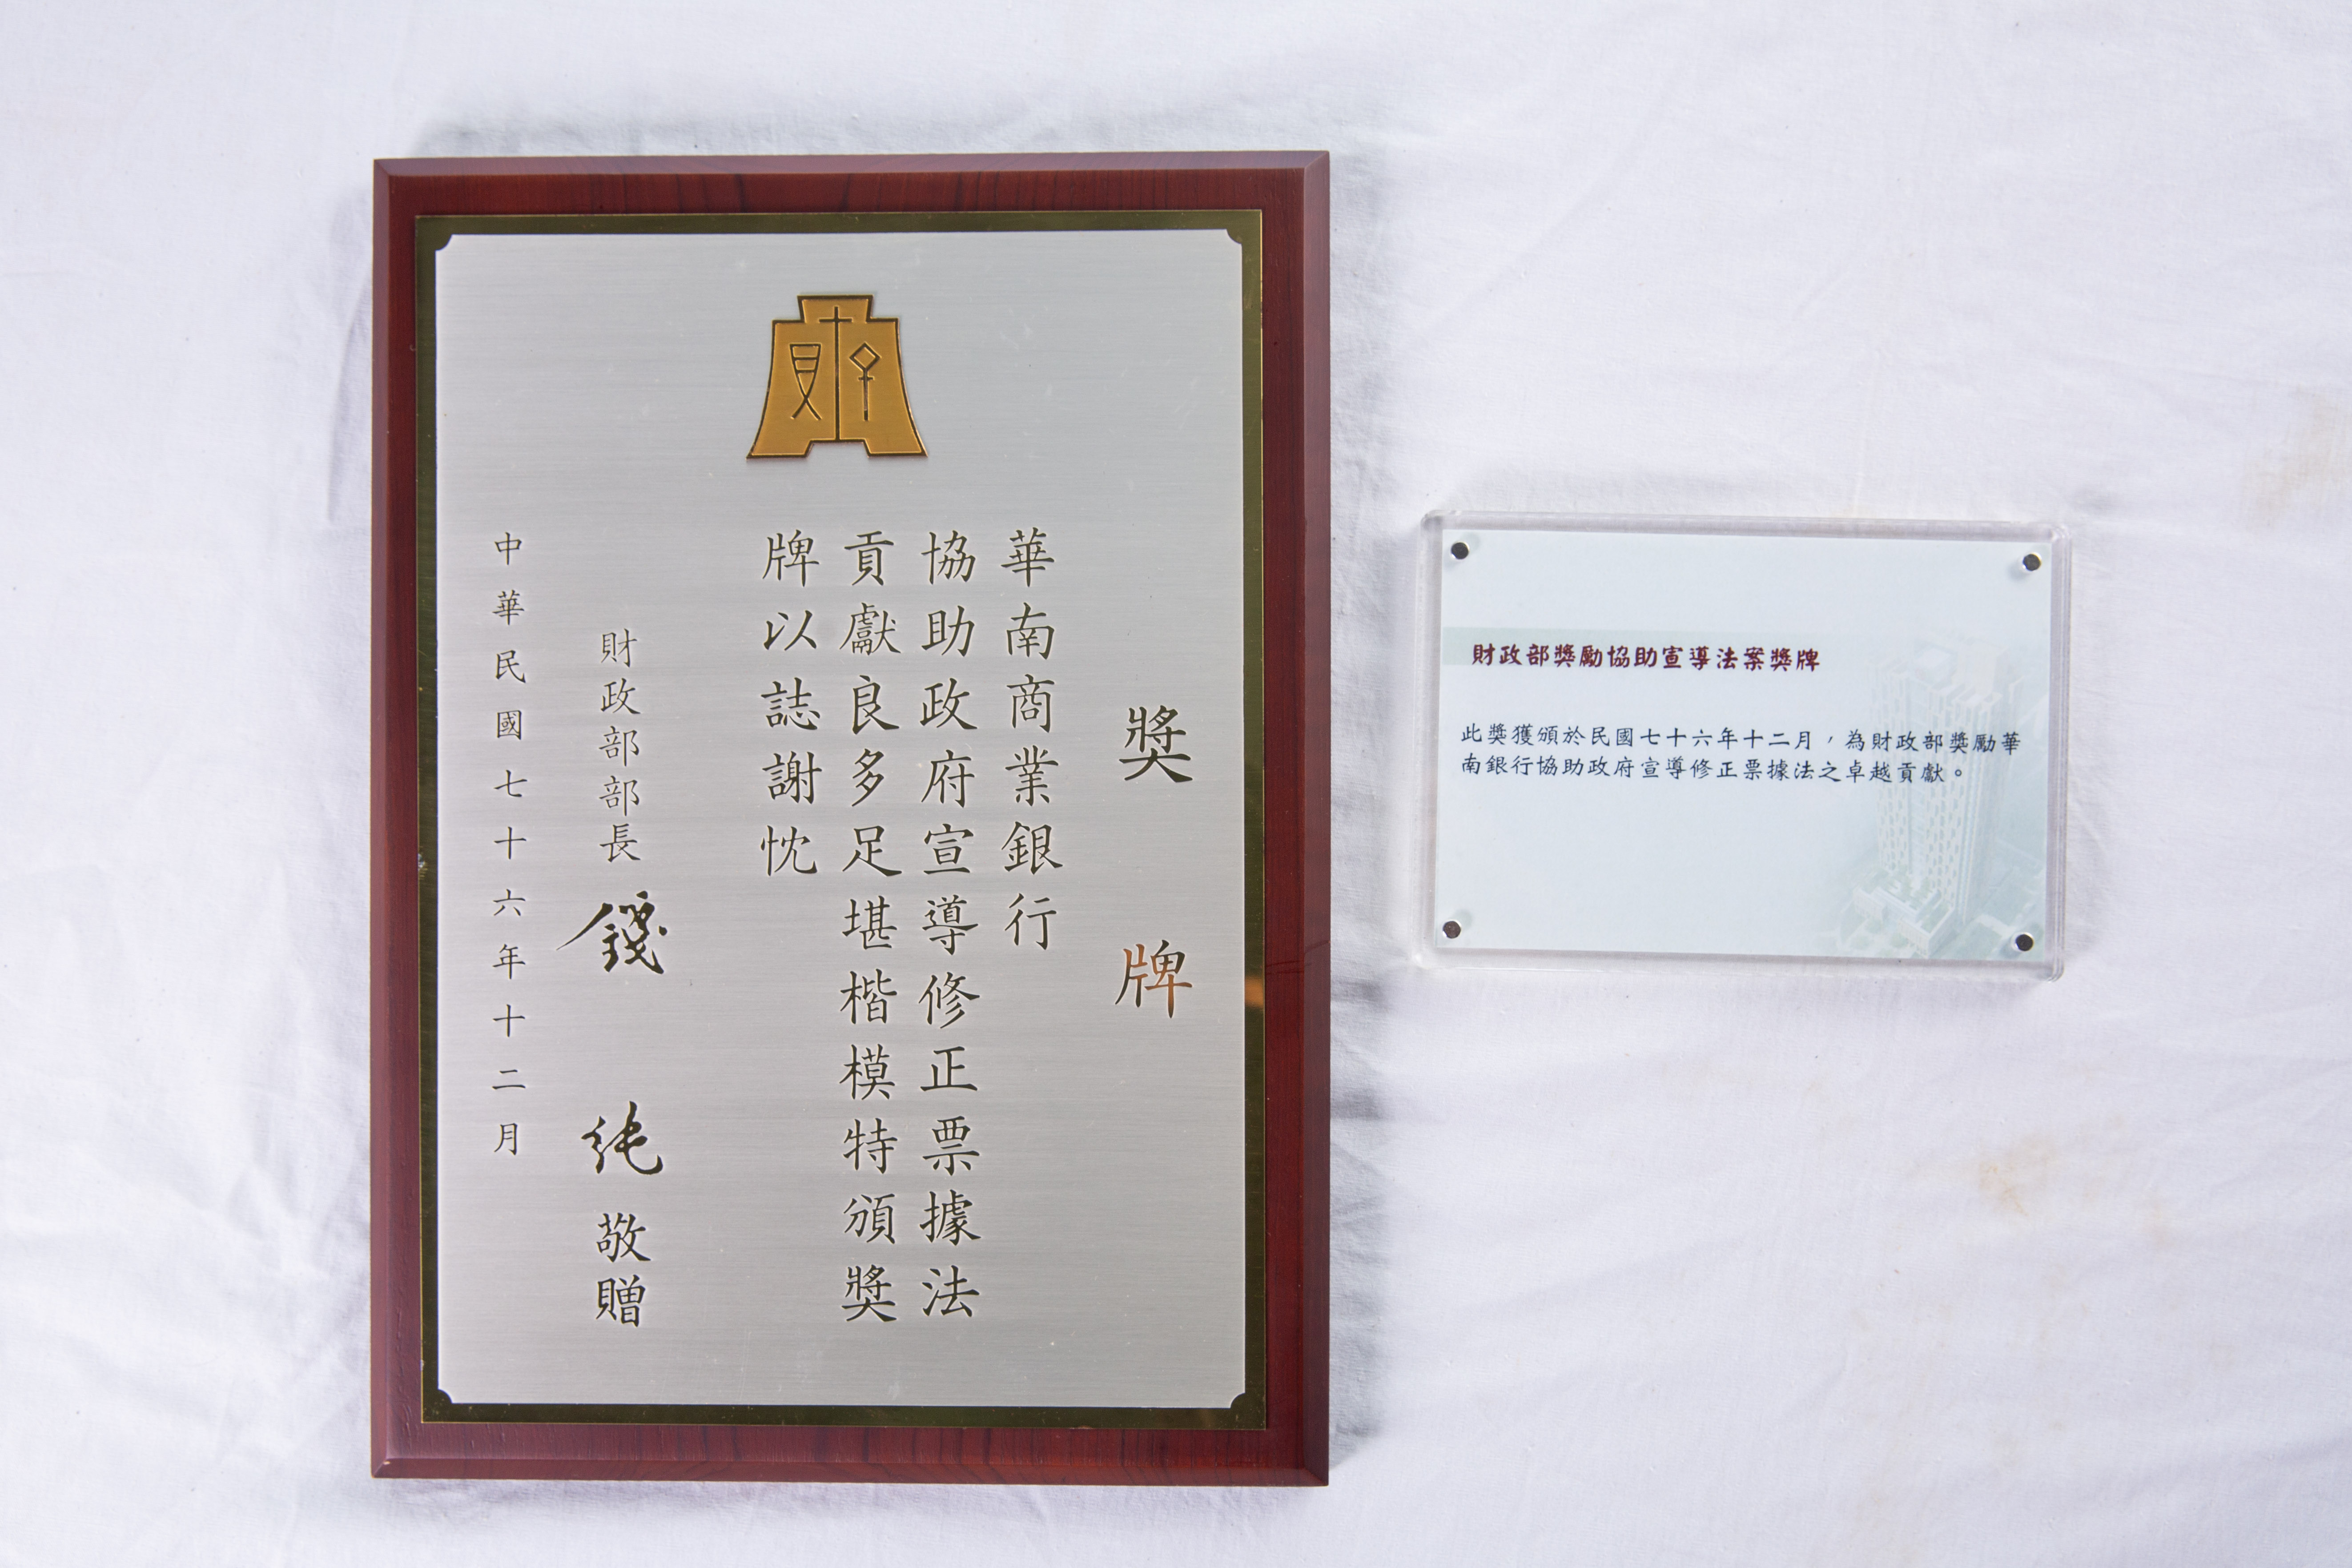 獎牌
華南商業銀行
協助政府宣導修正票據法
貢獻良多足堪楷模特頒獎
牌以誌謝忱
財政部部長 錢 純 敬贈
中華民國七十六年十二月
財政部獎勵協助宣導法案獎牌
此獎獲頒於民國七十六年十二月，為財政部獎勵華
南銀行協助政府宣導修正票據法之卓越貢獻。